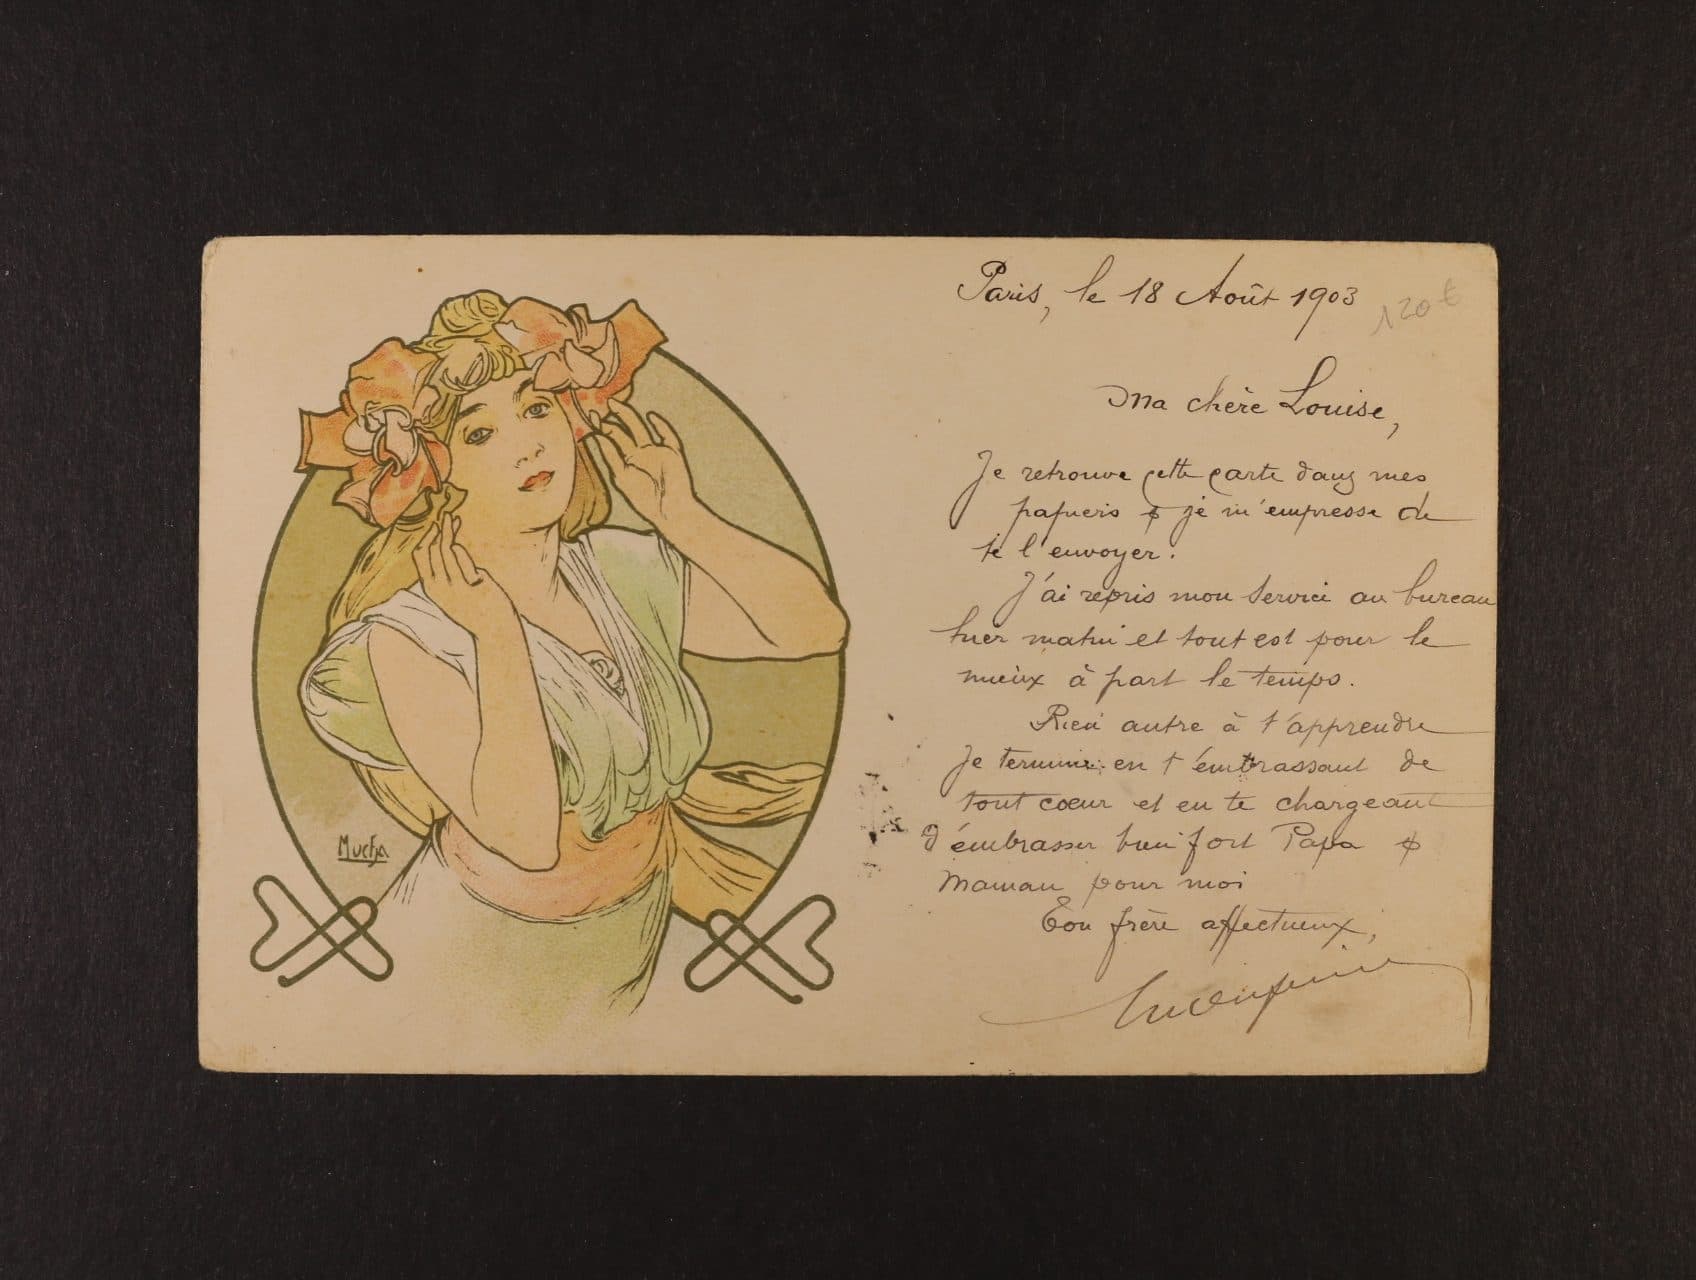 Paris, le 18 Août 1903
120€
Ma chère Louise,
Je retrouve cette carte dans mes
papiers & je m'empresse de
te l'envoyer.
J'ai repris mon service au bureau
hier matin et tout est pour le
mieux à part le temps.
Rien autre à t'apprendre
Je termine en t'embrassant de
tout cœur et en te chargeant
d'embrasser bien fort Papa &
Maman pour moi
Ton frère affectueux,
Mucha